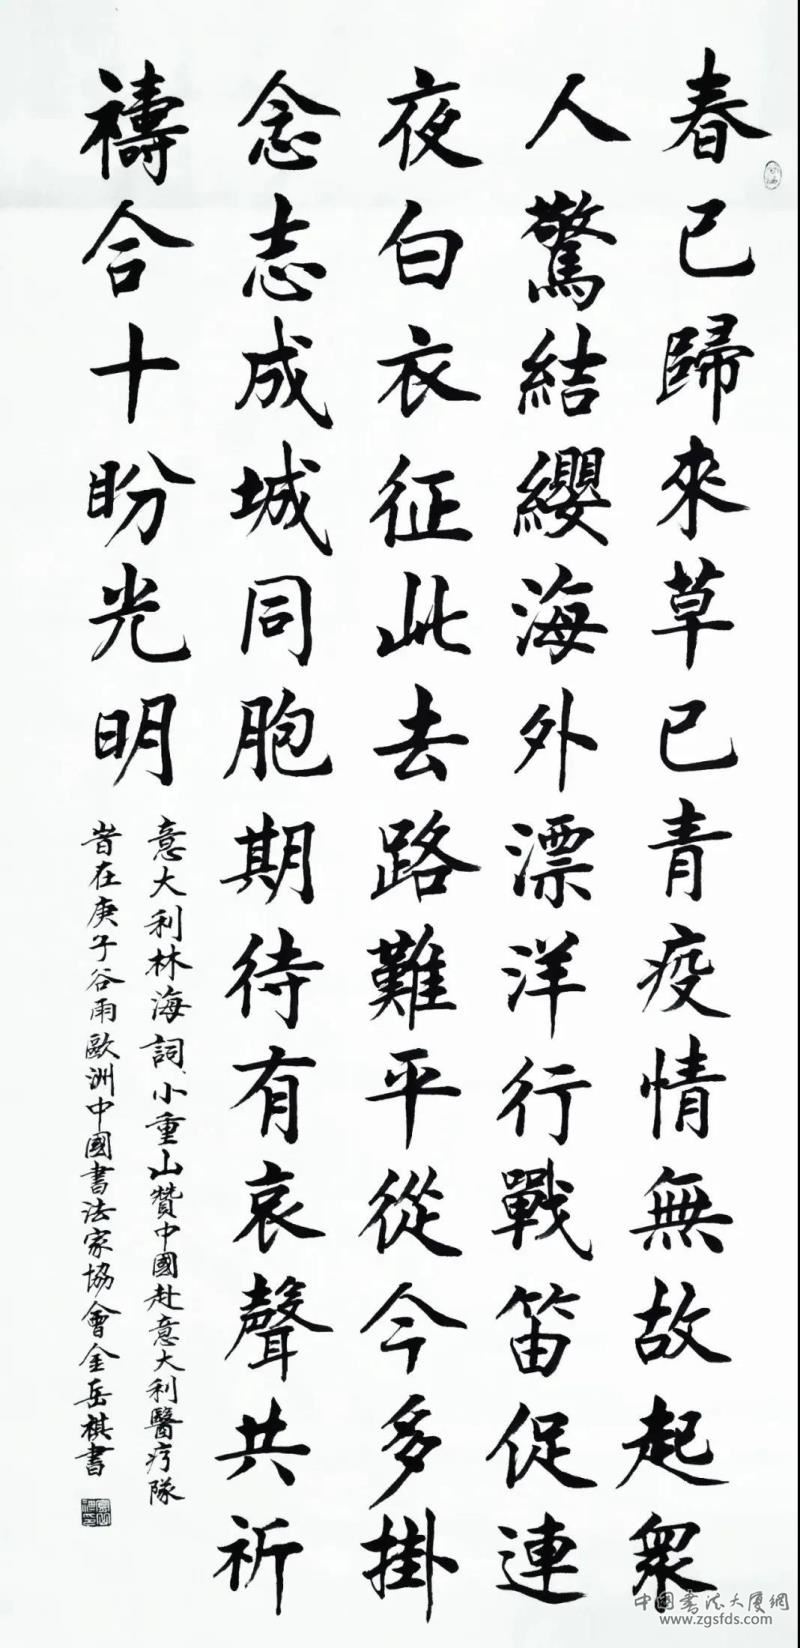 春已歸來草已青疫情無故起眾
人驚結纓海外漂洋行戰笛促連
夜白衣征此去路難平從今多掛
念志成城同胞期待有哀聲共祈
禱合十盼光明
意大利林海詞小重山贊中國赴意大利醫疗隊
昔在庚子谷雨歐洲中國書法家協會金岳祺書
中国書法大廈網
www.zgsfds.com